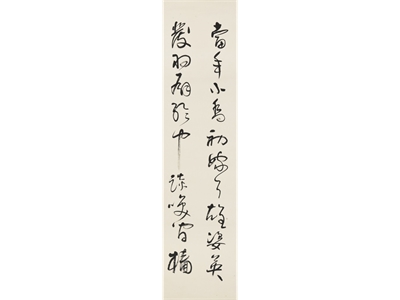 當年小喬初嫁了雄姿英
發羽扇綸巾談咲間檣